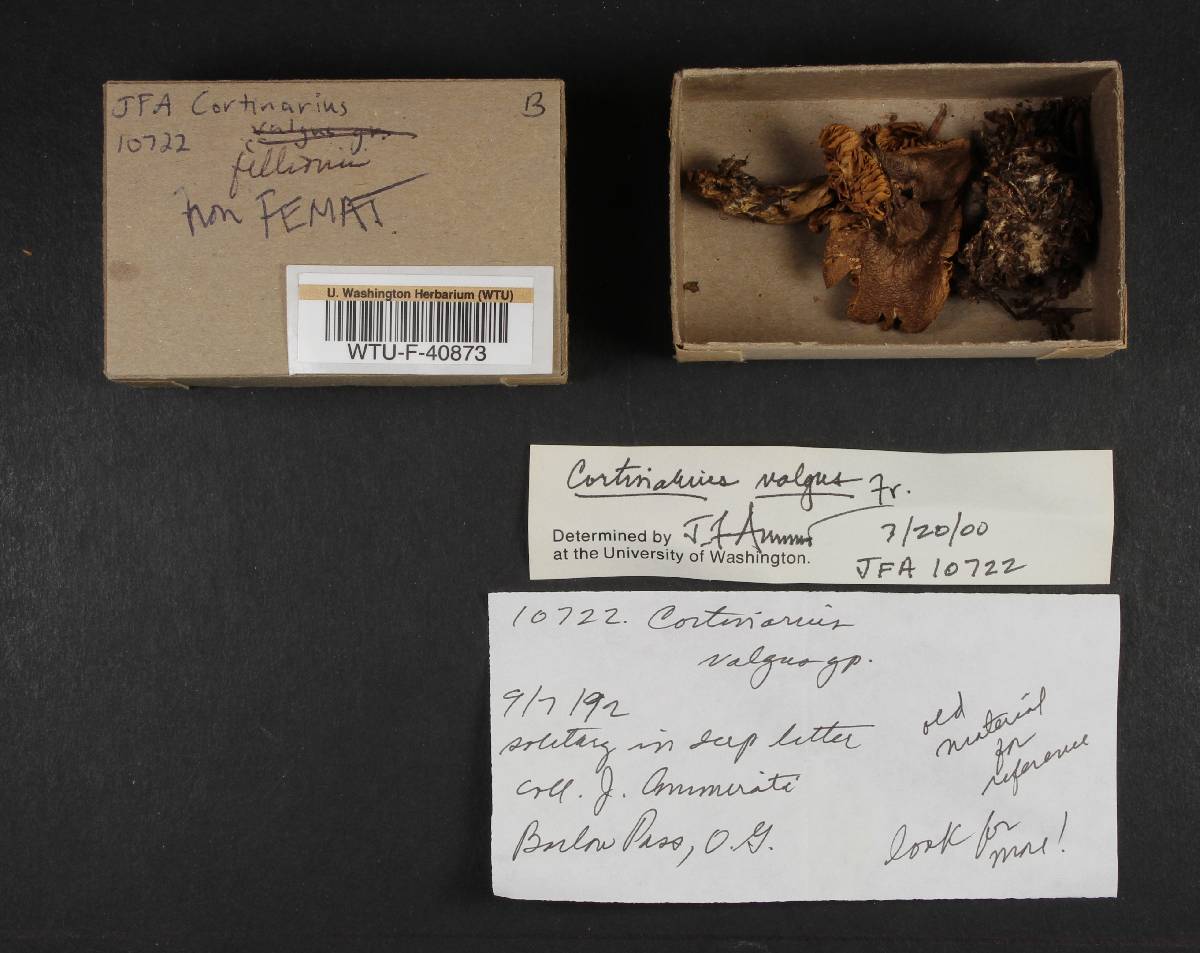 JFA Cortinarius B
10722 valgus gr.
non FEMAT
U. Washington Herbarium (WTU)
WTU-F-40873
Cortinarius valgus Fr.
Determined by J F Ammirati 3/20/00
at the University of Washington.
JFA 10722
10722. Cortinarius
valgus gp.
9/7/92
solitary in deep litter
coll. J. Ammirati
Barlow Pass, O.G.
old
material
for
reference
look for
more!